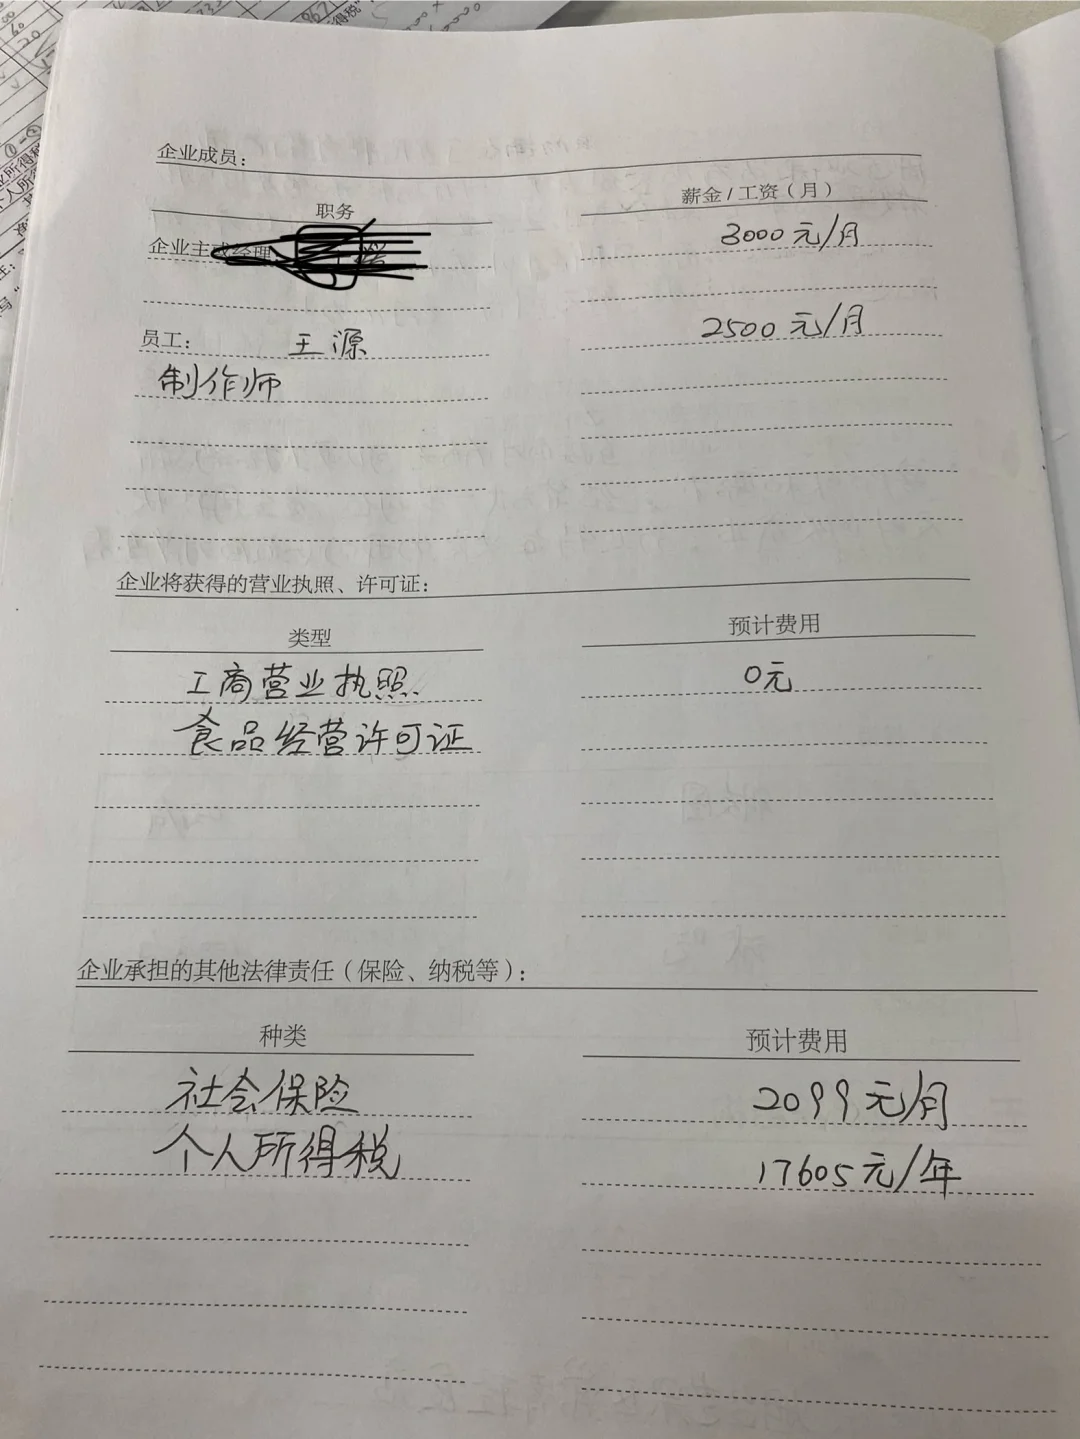 企业成员：
职务
薪金/工资（月）
企业主或经理
3000元/月
员工： 王源
2500元/月
制作师
企业将获得的营业执照、许可证：
类型
预计费用
工商营业执照
0元
食品经营许可证
企业承担的其他法律责任（保险、纳税等）：
种类
预计费用
社会保险
2099元/月
个人所得税
17605元/年